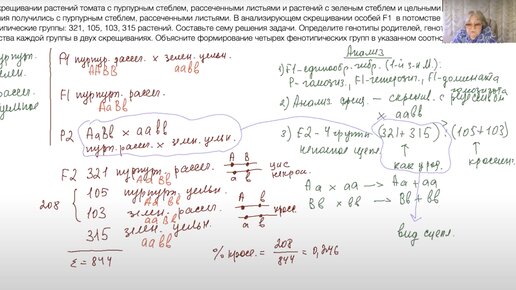 крещивании растений томата с пурпурным стеблем, рассеченными листьями и растений с зеленым стеблем и цельными
ия получились с пурпурным стеблем, рассеченными листьями. В анализирующем скрещивании особей F1 в потомстве
типические группы: 321, 105, 103, 315 растений. Составьте схему решения задачи. Определите генотипы родителей, генот
ства каждой группы в двух скрещиваниях. Объясните формирование четырех фенотипических групп в указанном соотно
P1 пурпур. рассеч. × зелен. цельн.
AABB aabb
F1 пурпур. рассеч.
AaBb
P2 AaBb × aabb
пурп. рассеч. × зелен. цельн.
F2 321 пурпурн. рассеч.
Aa Bb
105 пурпурн. цельн.
Aa bb
208
103 зелен. рассеч.
aa Bb
315 зелен. цельн.
aabb
Σ = 844
A B
a b
A b
a b
цис
кросс.
% кросс. = 208/844 = 0,246
Анализ
1) F1 - единообр. гибр. (1-й з-н М.)
P - гомозиг., F1 - гетерозиг.
2) Анализ скрещ.
× aabb
3) F2 - 4 группы (321+315) : (105+103)
неполное сцепл.
кроссин.
Aa × aa → Aa + aa
Bb × bb → Bb + bb
вид сцепл.